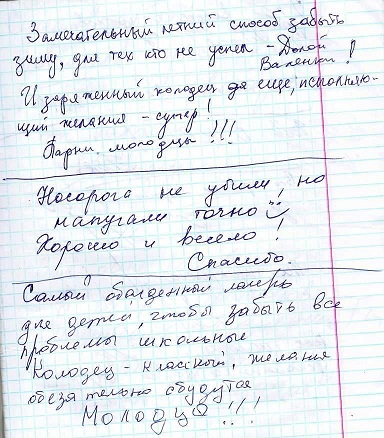 Замечательный летний способ забыть
зиму, для тех кто не успел - Долой
Валенки!
И заряженный колодец да еще, исполняю-
щий желания - супер!
Парни молодцы!!!
Носорога не убили, но
напугали точно
Хорошо и весело!
Спасибо.
Самый обалденный лагерь
для детей, чтобы забыть все
проблемы школьные
Колодец - класный, желания
обезательно сбудутся
Молодцы!!!